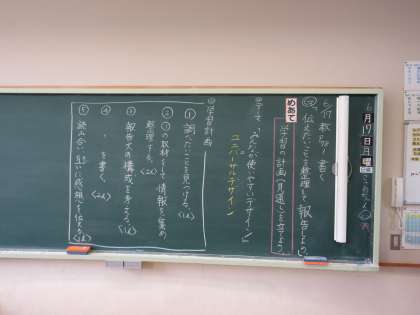 6月17日月曜
6/17 教P.59 書く
伝えたいことを整理して、報告しよう
めあて
学習の計画(見通し)を立てよう。
「みんなが使いやすいデザイン」
ユニバーサルデザイン
学習計画
① 調べたいことを見つける。
② ①の取材をして情報を集め
整理する。
③ 報告文の構成を考える。
④ 〃 を書く。
⑤ 読み合い、互いに感想を伝える。